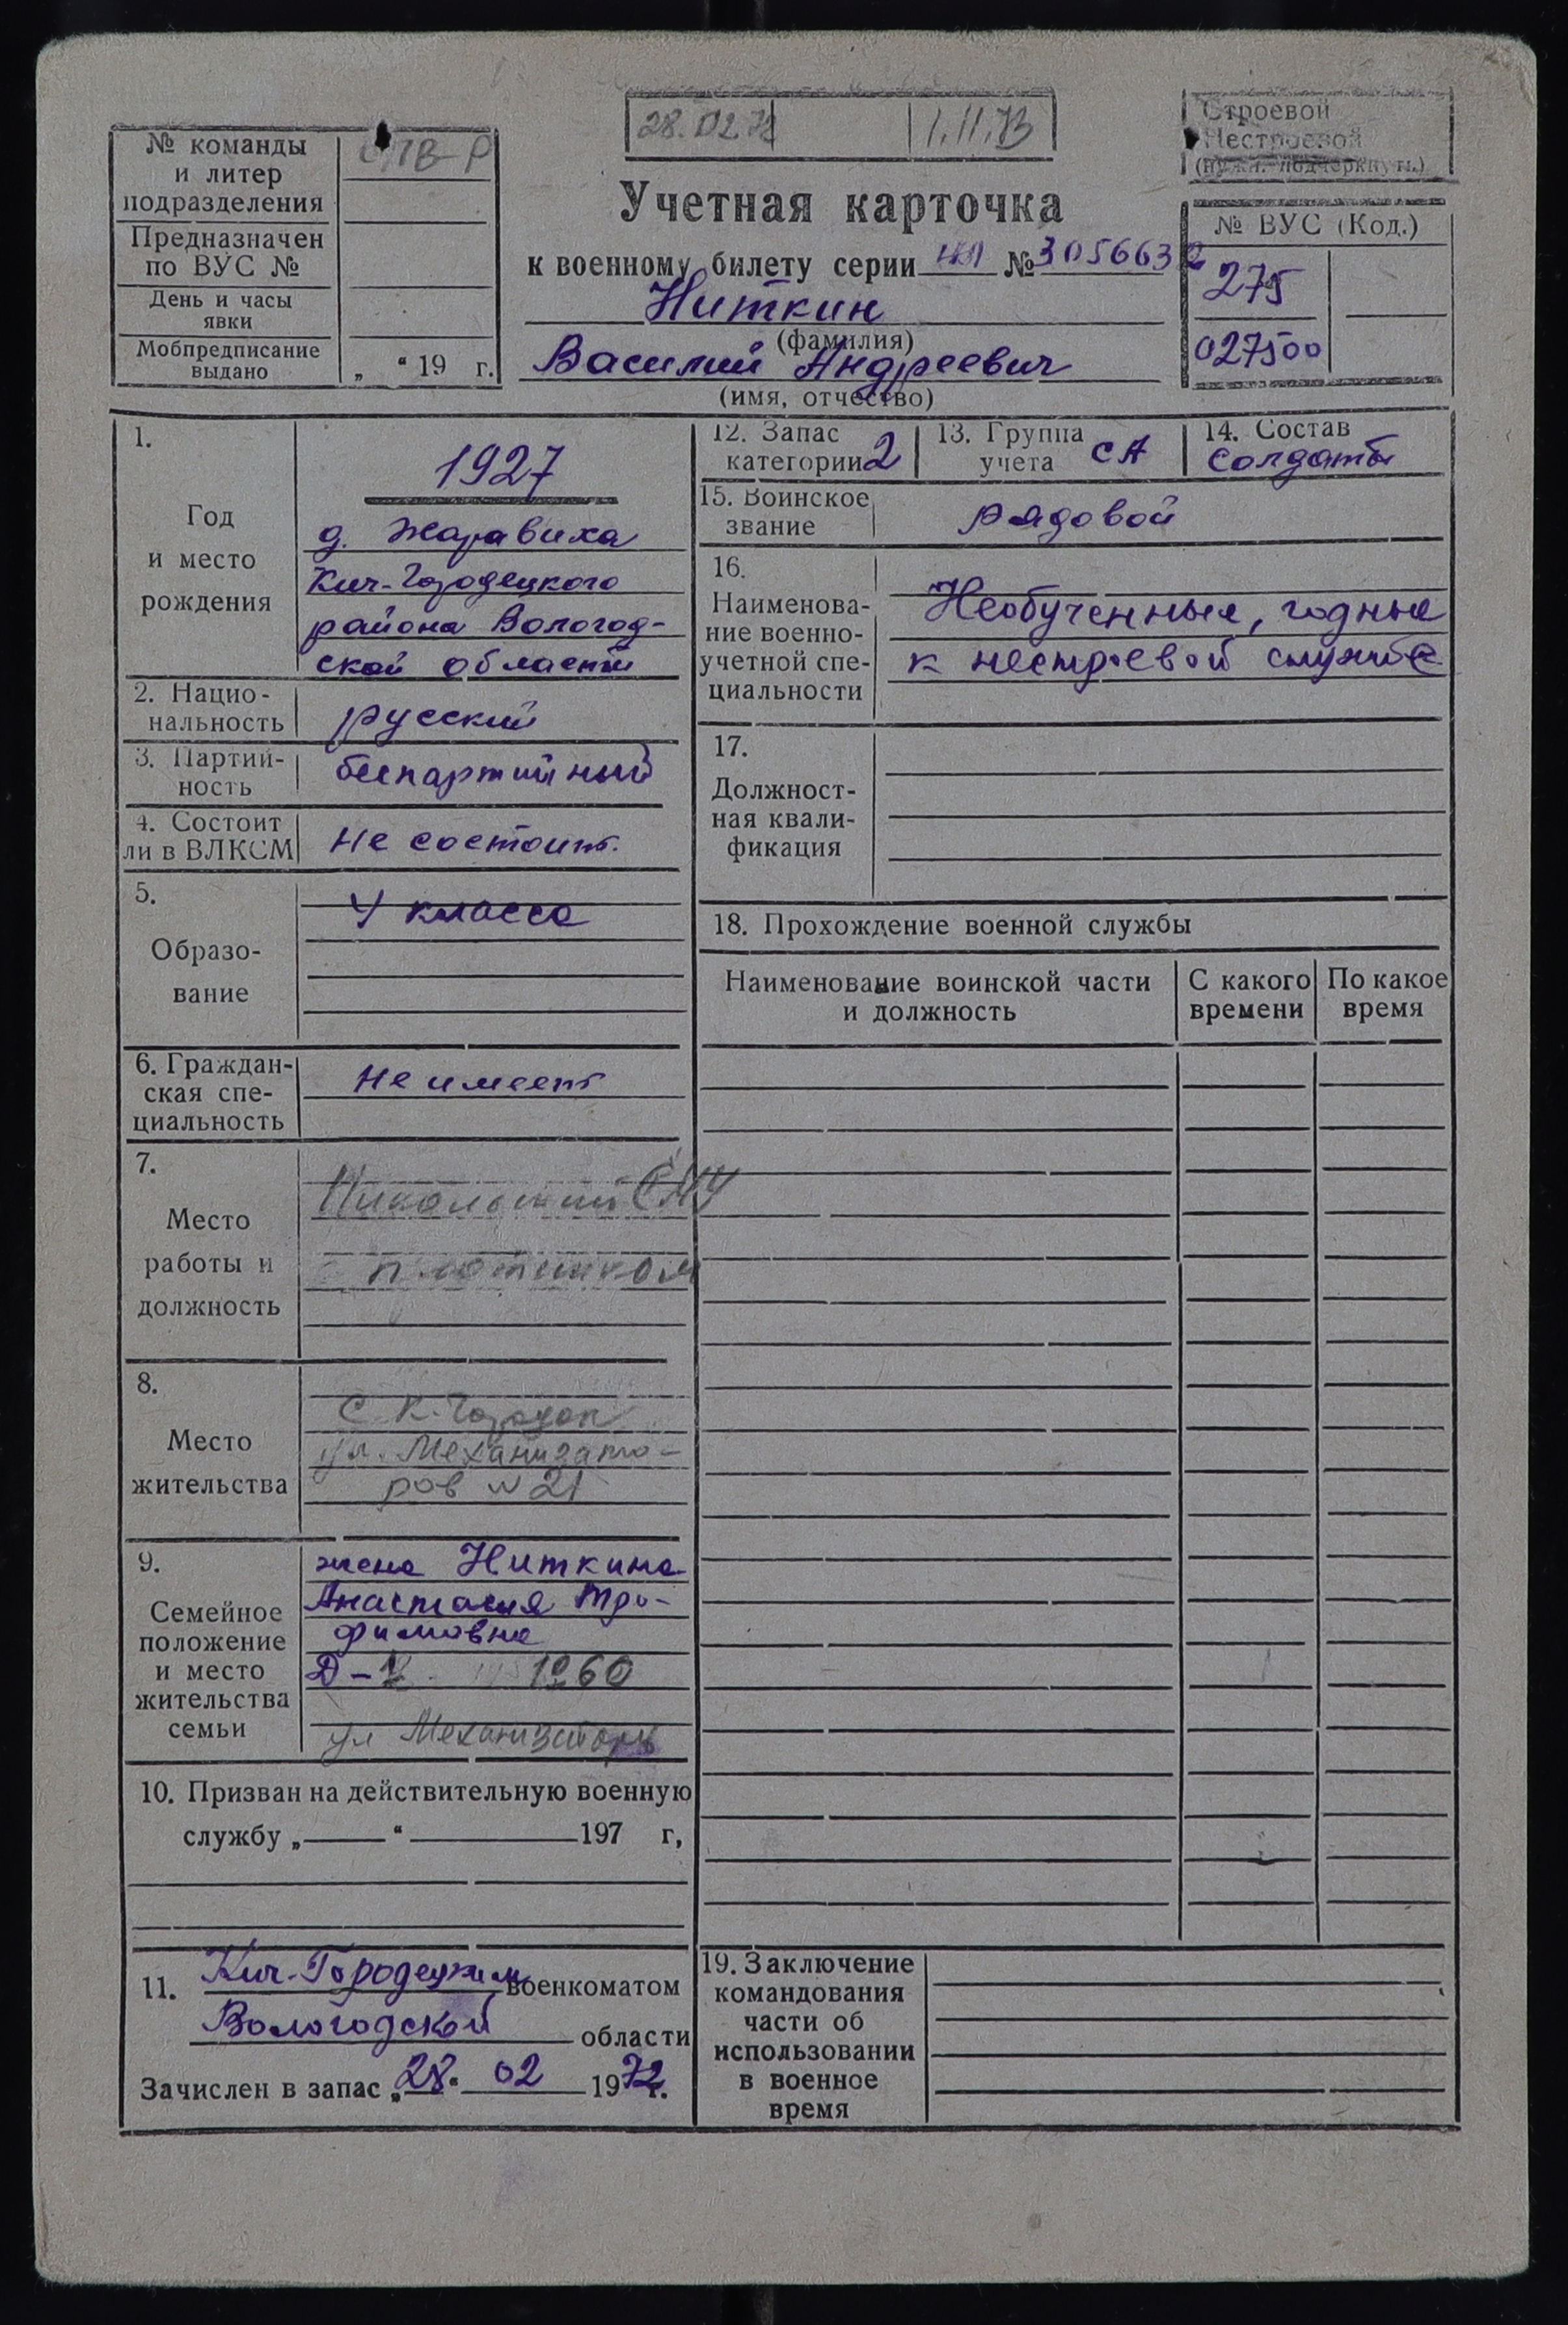 28.02.72 1.11.73
Строевой
Нестроевой
(нужн. подчеркнуть.)
№ команды
и литер
подразделения
Предназначен
по ВУС №
День и часы
явки
Мобпредписание
выдано „ “ 19 г.
Учетная карточка
к военному билету серии № 3056632
Ниткин
(фамилия)
Василий Андреевич
(имя, отчество)
№ ВУС (Код.)
275
027500
1.
Год
и место
рождения
1927
д. Жаравиха
Кич-Городецкого
района Вологод-
ской области
2. Нацио-
нальность русский
3. Партий-
ность беспартийный
4. Состоит
ли в ВЛКСМ Не состоит.
5.
Образо-
вание
4 класса
6. Граждан-
ская спе-
циальность
Не имеет
7.
Место
работы и
должность
Никольский СМУ
плотником
8.
Место
жительства
С. К-Городок
ул. Механизато-
ров № 21
9.
Семейное
положение
и место
жительства
семьи
жена Ниткина
Анастасия Тро-
фимовна
Д – 1960
ул Механизаторов
10. Призван на действительную военную
службу „ “ 197 г,
11. Кич-Городецким военкоматом
Вологодской области
Зачислен в запас „28“ 02 1972 г.
12. Запас
категории 2
13. Группа
учета СА
14. Состав
солдаты
15. Воинское
звание рядовой
16.
Наименова-
ние военно-
учетной спе-
циальности
Необученные, годные
к нестроевой службе
17.
Должност-
ная квали-
фикация
18. Прохождение военной службы
Наименование воинской части
и должность
С какого
времени
По какое
время
19. Заключение
командования
части об
использовании
в военное
время